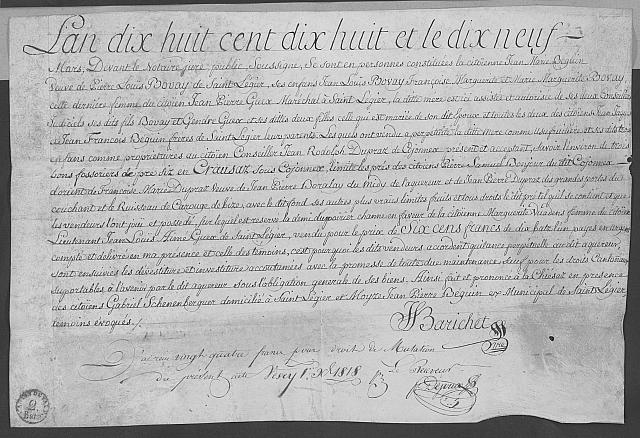 Lan dix huit cent dix huit et le dix neuf
Mars, Devant le Notaire juré public Soussigné, Se sont en personnes constituées la citoienne Jean Marie Béguin
Veuve de Pierre Louis Bovay de Saint Légier, ses enfans Jean Louis Bovay Françoise Marguerite et Marie Marguerite Bovay,
cette derniere femme du citoien Jean Pierre Guex Maréchal à Saint Légier, la ditte mere est ici assistée et autorisée de ses deux Conseillers
ses dits fils Bovay et Gendre Guex et ses dittes deux filles celle qui est mariée de son dit Epoux et toutes les deux des citoiens Jean
& Jean François Béguin freres de Saint Légier leur parents. Lesquels ont vendu a perpétuité la ditte mere comme usufruitiere et ses dits trois
enfans comme proprietaires au citoien Conseiller Jean Rodolph Dupraz de Cojonnex présent et acceptant, Savoir l'environ de trois
bons fossoriers de pré Siz en Crausaz Sous Cojonnex, limite les prés des citoiens Pierre Samuel Bonjour du dit Cojonnex
d'orient de Françoise Marie Dupraz Veuve de Jean Pierre Boralay du midy de l'aquereur et de Jean Pierre Dupraz des grandes portes du
couchant et le Ruisseau de Carouge de bize, avec le dit fond ses autres plus vrais limites fruits et tous droits le dit pré tel qu'il se contient et que
les vendeurs l'ont joui et possedé, sur lequel est reservé le demi du poirier channe en faveur de la citoienne Marguerite femme du citoien
Lieutenant Jean Louis Aimé Guex de Saint Légier, vendu pour le prix de Six cens francs de dix batz l'un, payés en argent
compté et délivré en ma presence et celle des temoins, c'est pourquoi les dits vendeurs accordent quittance perpetuelle au dit aquereur,
sont ensuivies les devestiture et investiture accoutumées avec la promesse de toute due maintenance, Sauf pour les droits Cantonaux
suportables à l'avenir par le dit aquereur sous l'obligation generale de ses biens. Ainsi fait et prononcé à la Chiesaz en presence
des citoiens Gabriel Schenenberguer domicilié à Saint Légier et Moyze Jean Pierre Béguin ex Municipal de Saint Légier
temoins évoqués.
Barichet
J'ai reçu vingt quatre francs pour droit de Mutation
du présent acte Vevey 1818
Le Receveur